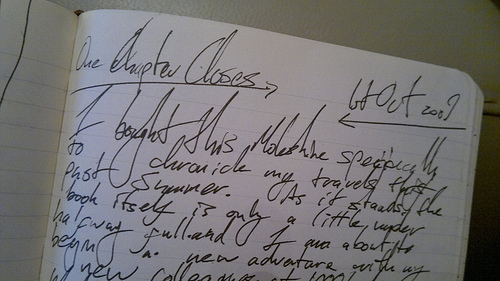 One Chapter Closes
1st Oct 2009
I bought this Moleskine specifically
to chronicle my travels that
past Summer. As it stands, the
book itself is only a little under
halfway full and I am about to
begin a new adventure with my
new colleagues at